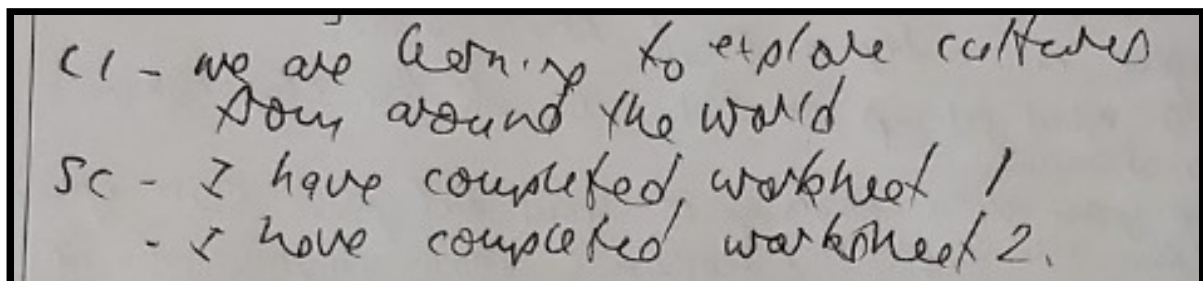 LI - we are learning to explore cultures
from around the world
SC - I have completed worksheet 1
- I have completed worksheet 2.